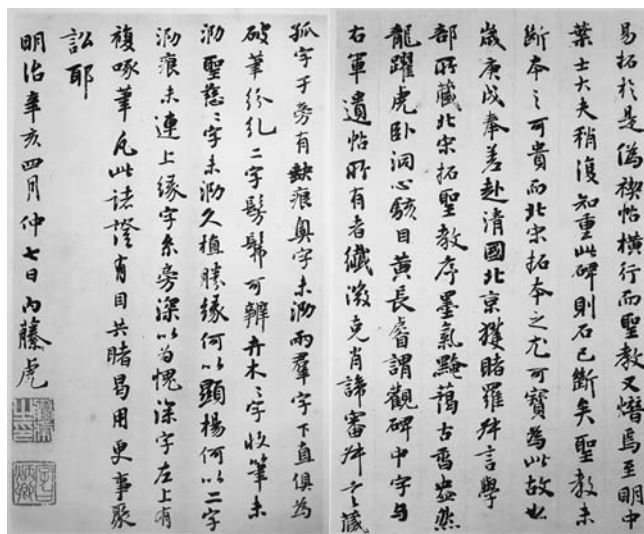 易拓於是偽禊帖橫行而聖教又熸焉至明中
葉士大夫稍復知重此碑則石已斷矣聖教未
斷本之可貴而北宋拓本之尤可寶為此故也
歲庚戌奉差赴清國北京獲睹羅叔言學
部所藏北宋拓聖教序墨氣黯藹古香盎然
龍躍虎臥洞心駭目黃長睿謂觀碑中字与
右軍遺帖所有者纖微克肖諦審叔言藏
孤字子旁有缺痕奧字未泐兩羣字下直俱為
破筆紛糺二字髣髴可辨卉木二字收筆未
泐聖慈二字未泐久植勝緣何以顯楊何以二字
泐痕未連上緣字糸旁深以為愧深字左上有
複啄筆凡此諸證有目共睹曷用更事聚
訟耶
明治辛亥四月仲七日內藤虎